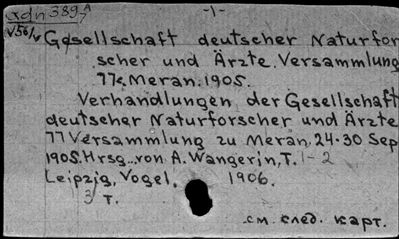 xdn 389 A/7 -1-
V56/v Gesellschaft deutscher Naturfor
scher und Ärzte. Versammlung
77e Meran. 1905.
Verhandlungen der Gesellschaft
deutscher Naturforscher und Ärzte
77 Versammlung zu Meran. 24-30 Sep
1905. Hrsg. von A. Wangerin, T. 1-2
Leipzig, Vogel, 1906.
3 т.
см. след. карт.